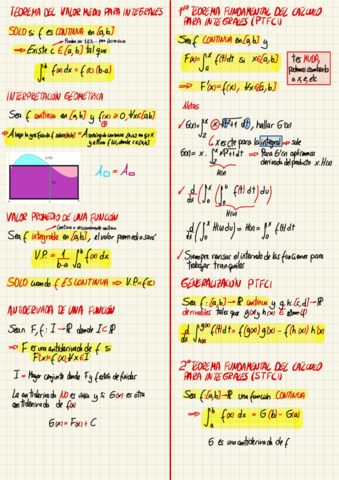 TEOREMA DEL VALOR MEDIO PARA INTEGRALES
SOLO si f es CONTINUA en [a,b]
⇒ Existe c ∈ [a,b] tal que
∫ₐᵇ f(x) dx = f(c) (b-a)
INTERPRETACIÓN GEOMÉTRICA
Sea f continua en [a,b] y f(x) ≥ 0, ∀x∈[a,b]
VALOR PROMEDIO DE UNA FUNCIÓN
Sea f integrable en [a,b], el valor promedio será
V.P. = 1/(b-a) ∫ₐᵇ f(x) dx
SOLO cuando f ES CONTINUA ⇒ V.P. = f(c)
ANTIDERIVADA DE UNA FUNCIÓN
Sean F, f: I → R donde I ⊂ R
⇒ F es una antiderivada de f si
F'(x) = f(x), ∀x∈I
I = Mayor conjunto donde F y f están definidas
La antiderivada NO es única y si G(x) es otra
antiderivada de f(x)
G(x) = F(x) + C
1er TEOREMA FUNDAMENTAL DEL CALCULO
PARA INTEGRALES (PTFCI)
Sea f CONTINUA en [a,b] y
F(x) = ∫ₐˣ f(t) dt si x∈[a,b]
⇒ F'(x) = f(x), ∀x∈[a,b]
t es MUDA,
podemos cambiarlo
a x, z, etc
Notas
, hallar G'(x)
x es cte para la integral → sale
→ Para G'(x) aplicamos
derivada del producto x · H(x)
d/dx ∫₀ˣ (∫₀ᵘ f(t) dt) du
H(u)
d/dx ∫₀ˣ H(u) du = H(x) = ∫₀ˣ f(t) dt
✓ Siempre revisar el intervalo de las funciones para
trabajar tranquilos
GENERALIZACIÓN PTFCI
Sea f: [a,b] → R continua y g, h: [c,d] → R
derivables tales que g(x) y h(x) ∈
STFCI
2º TEOREMA FUNDAMENTAL DEL CALCULO
PARA INTEGRALES (STFCI)
Sea f: [a,b] → R una función CONTINUA
⇒ ∫ₐᵇ f(x) dx = G(b) - G(a)
G es una antiderivada de f